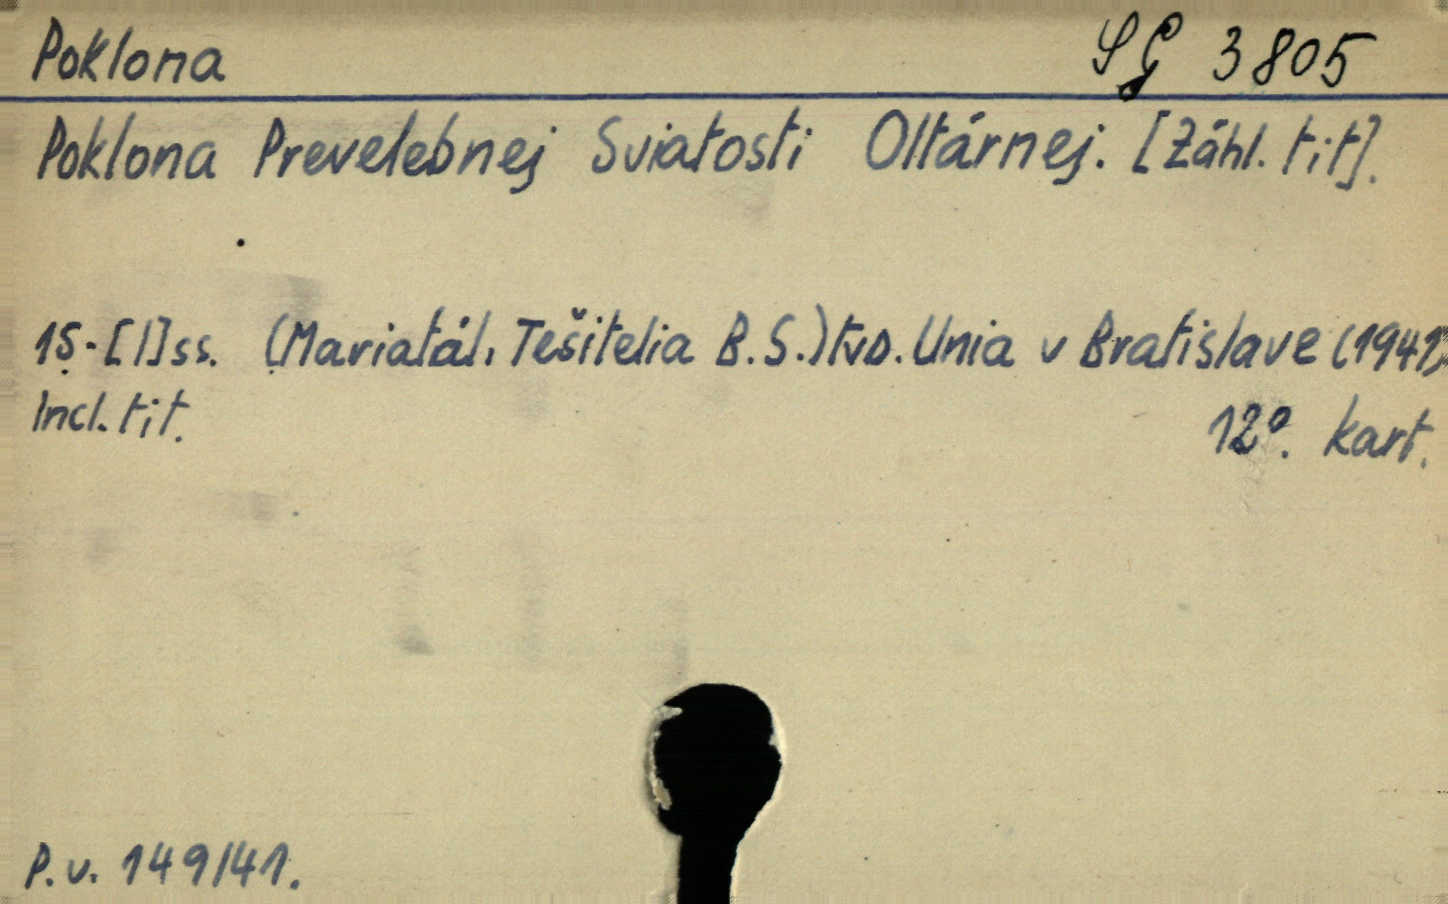 Poklona SG 3805
Poklona Prevelebnej Sviatosti Oltárnej. [Záhl. tit].
15-[1]ss. (Mariatál, Tešitelia B.S.) tvo. Unia v Bratislave (1941)
Incl. tit. 12°. kart.
P. v. 149/41.